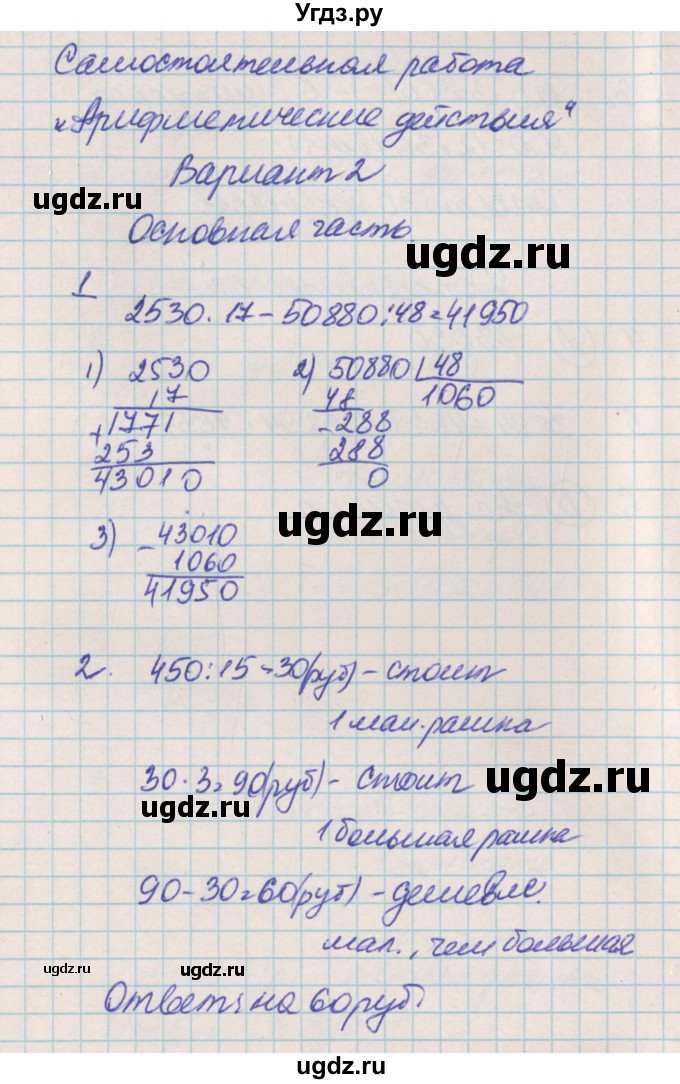 Угдз.ру
Самостоятельная работа
"Арифметические действия"
Вариант 2
ugdz.ru
Основная часть.
ugdz.ru
1
2530 · 17 - 50880 : 48 = 41950
1) 2530
17
+ 1771
253
43010
2) 50880 48
48 1060
- 288
288
0
ugdz.ru
3) - 43010
1060
41950
2. 450 : 15 = 30 (руб) - стоит
1 мал. рамка
ugdz.ru
30 · 3 = 90 (руб) - стоит
ugdz.ru
1 большая рамка
90 - 30 = 60 (руб) - дешевле
мал., чем большая
ugdz.ru
ugdz.ru
Ответ: на 60 руб.
ugdz.ru